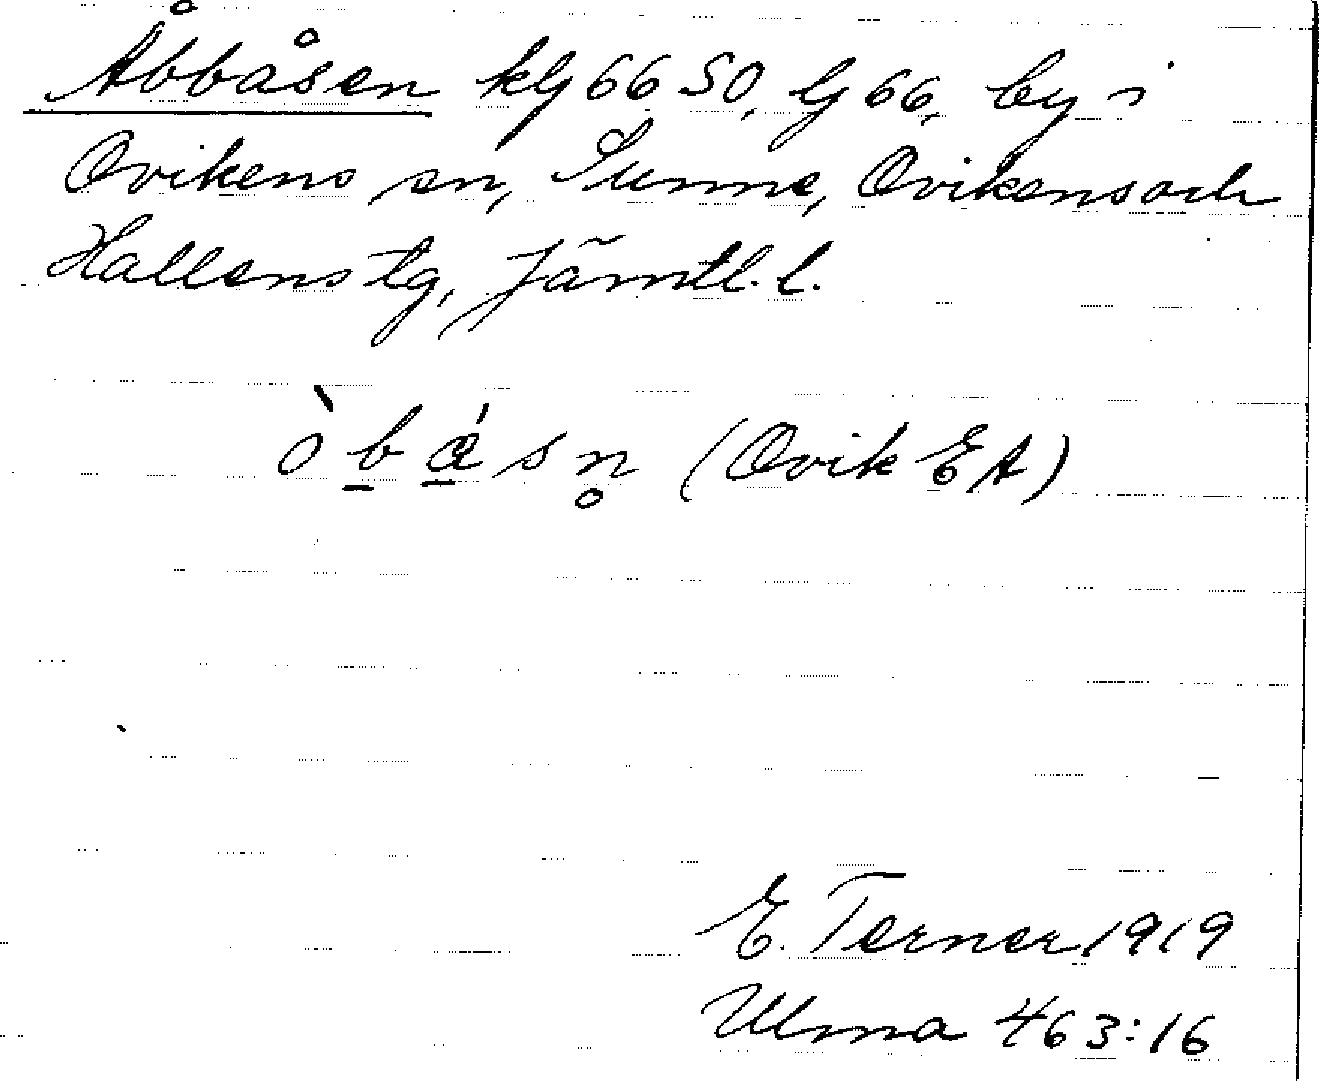 Åbbåsen kG 66 SO, G 66, by i
Ovikens sn, Sunne, Ovikens och
Hallens tg, Jämtl. l.
ò b á s n̥ (Ovik EA)
E. Terner 1919
Ulma 463:16